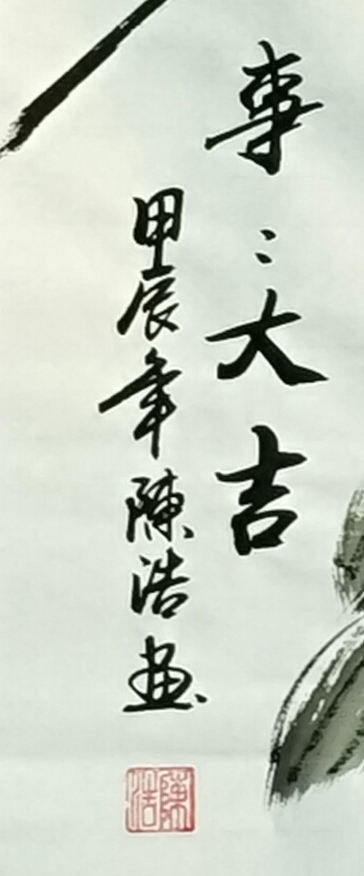 事〻大吉
甲辰年陳浩畫
陳浩